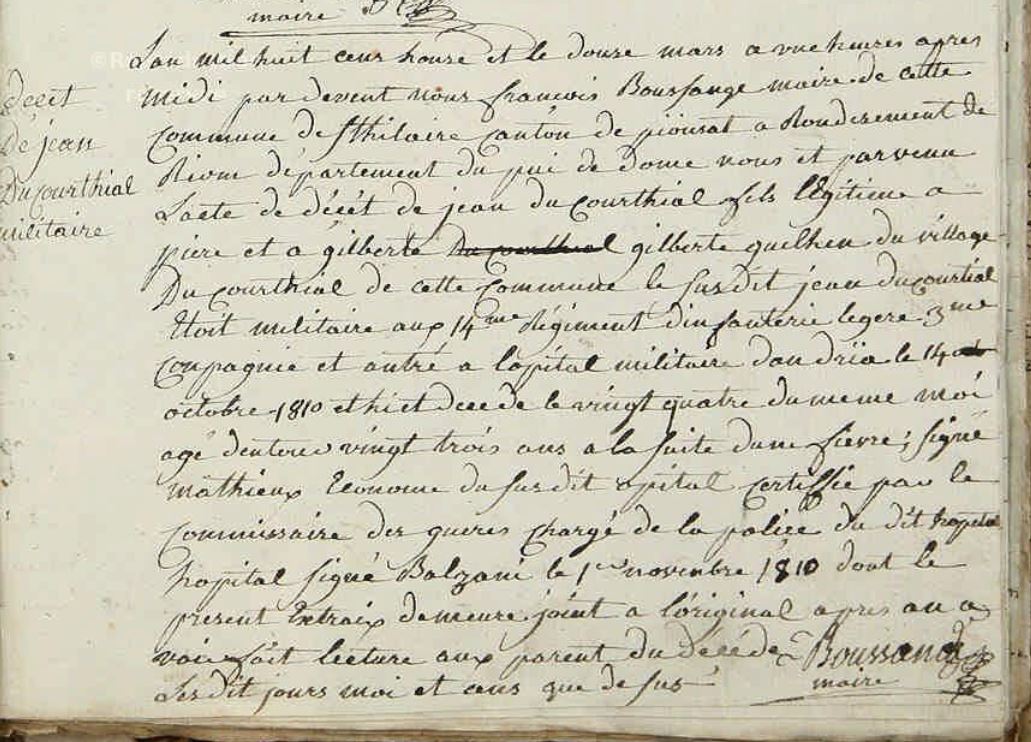 maire
Lan mil huit cens honze et le douze mars a une heures apres
midi par devent nous francois Boussange maire de cette
Commune de St hilaire canton de pionsat a Rondisement de
Riom département du pui de dome nous et parvenu
Lacte de décét de jean du courthial fils légitime a
piere et a gilberte gilberte guilhen du village
Du courthial de cette Commune le sus dit jean du courtial
Etoit militaire aux 14me Régiment dinfanterie legere 3me
Compagnie et antré a lopital militaire dandria le 14
octobre 1810 et hiet decede le vingt quatre du meme moi
agé denviron vingt trois ans a la suite dune fievre; signé
mathieux Econome du sus dit opital certiffie par le
Commissaire des gueres chargé de la police du dit hopital
hopital signé Balzani le 1er novembre 1810 dont le
present Extraix demeure joint a l'original apres an a
voir fait lecture aux parent du décéde Boussange
Les dit jours moi et ans que de sus maire
décét
De jean
Du courthial
militaire